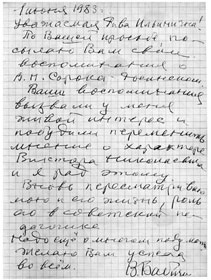 1 июня 1983.
Уважаемая Рива Ильинична!
По Вашей просьбе по-
сылаю Вам свои
воспоминания о
В. Н. Сорока-Росинском.
Ваши воспоминания
вызвали у меня
живой интерес и
побудили переменить
мнение о характере
Виктора Николаевича
и я рад этому.
Вновь пересматриваю
мою и его жизнь, роль
его в советской пе-
дагогике
Надо еще о многом подумать
желаю Вам успеха
во всём.